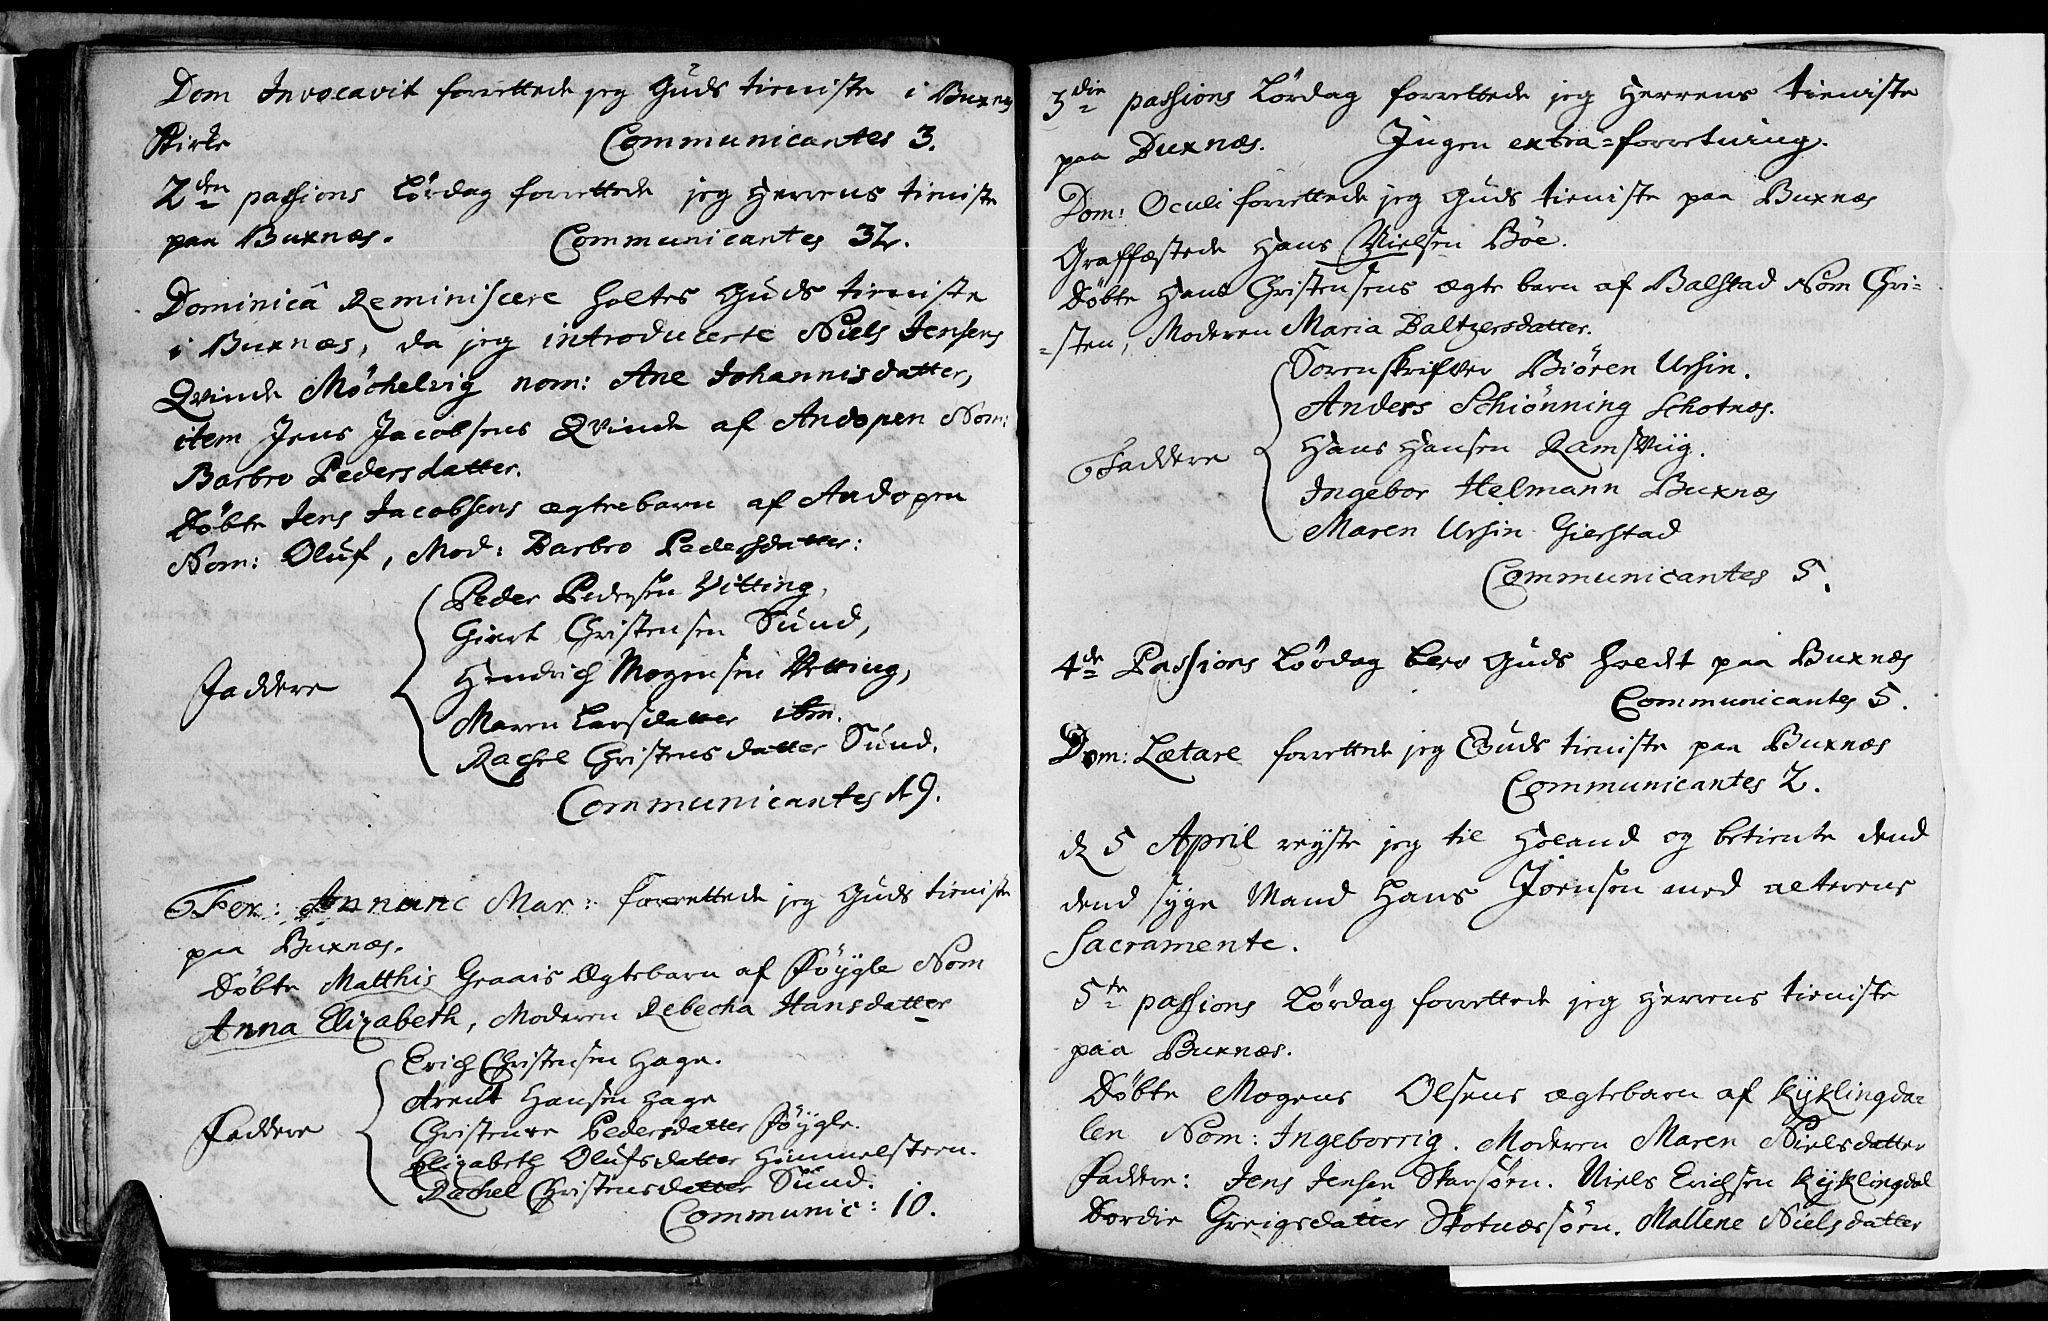 Dom Invocavit forrettede jeg Guds tieniste i Buxnæs
Kirke Communicantes 3.
2den passions Lørdag forrettede jeg Herrens tieniste
paa Buxnæs. Communicantes 32.
Dominicâ Reminiscere holtes Guds tieniste
i Buxnæs, da jeg introducerte Niels Jensens
Qvinde Møchelvig nom: Ane Johannisdatter,
item Jens Jacobsens Qvinde af Andopen Nom:
Barbro Pedersdatter.
Døbte Jens Jacobsens ægtebarn af Andopen
Nom: Oluf, Mod: Barbro Pedersdatter:
Peder Pedersen Vitting,
Giert Christensen Sund,
Faddere Hendrich Mogensen Vetting,
Maren Larsdatter ibm.
Rachel Christensdatter Sund.
Communicantes 19.
Fer: Annunc Mar: forrettede jeg Guds tieniste
paa Buxnæs.
Døbte Matthis Graais Ægtebarn af Føygle Nom
Anna Elizabeth, Moderen Rebecha Hansdatter
Erich Christensen Hage.
Arent Hansen Hage
Faddere Christence Pedersdatter Føygle.
Elizabeth Olufsdatter Himmelsteen.
Rachel Christensdatter Sund.
Communic: 10.
3die passions Lørdag forrettede jeg Herrens tieniste
paa Buxnæs. Ingen extra=forretning.
Dom: Oculi forrettede jeg Guds tieniste paa Buxnæs
Graffæstede Hans Nielsen Bøe.
Døbte Hans Christensens ægte barn af Balstad Nom Chri=
=sten, Moderen Maria Baltzersdatter.
Sorenskriffver Biören Ursin.
Anders Schiønning Schotnæs.
Faddere Hans Hansen Ramsviig.
Ingebor Helmann Buxnæs
Maren Ursin Gierstad
Communicantes 5.
4de Passions Lørdag blev Guds holdt paa Buxnæs
Communicantes 5.
Dom: Lætare forrettede jeg Guds tieniste paa Buxnæs
Communicantes 2.
d 5 April reyste jeg til Holand og betiente dend
dend syge Mand Hans Joensen med alterens
Sacramente.
5te passions Lørdag forrettede jeg Herrens tieniste
paa Buxnæs.
Døbte Mogens Olsens ægtebarn af Kyklingda=
len Nom: Ingeborrig. Moderen Maren Nielsdatter
Faddere: Jens Jensen Skarsøen. Niels Erichsen Kyklingdal
Dordie Greigsdatter Skotnæssøen. Mallene Nielsdatter